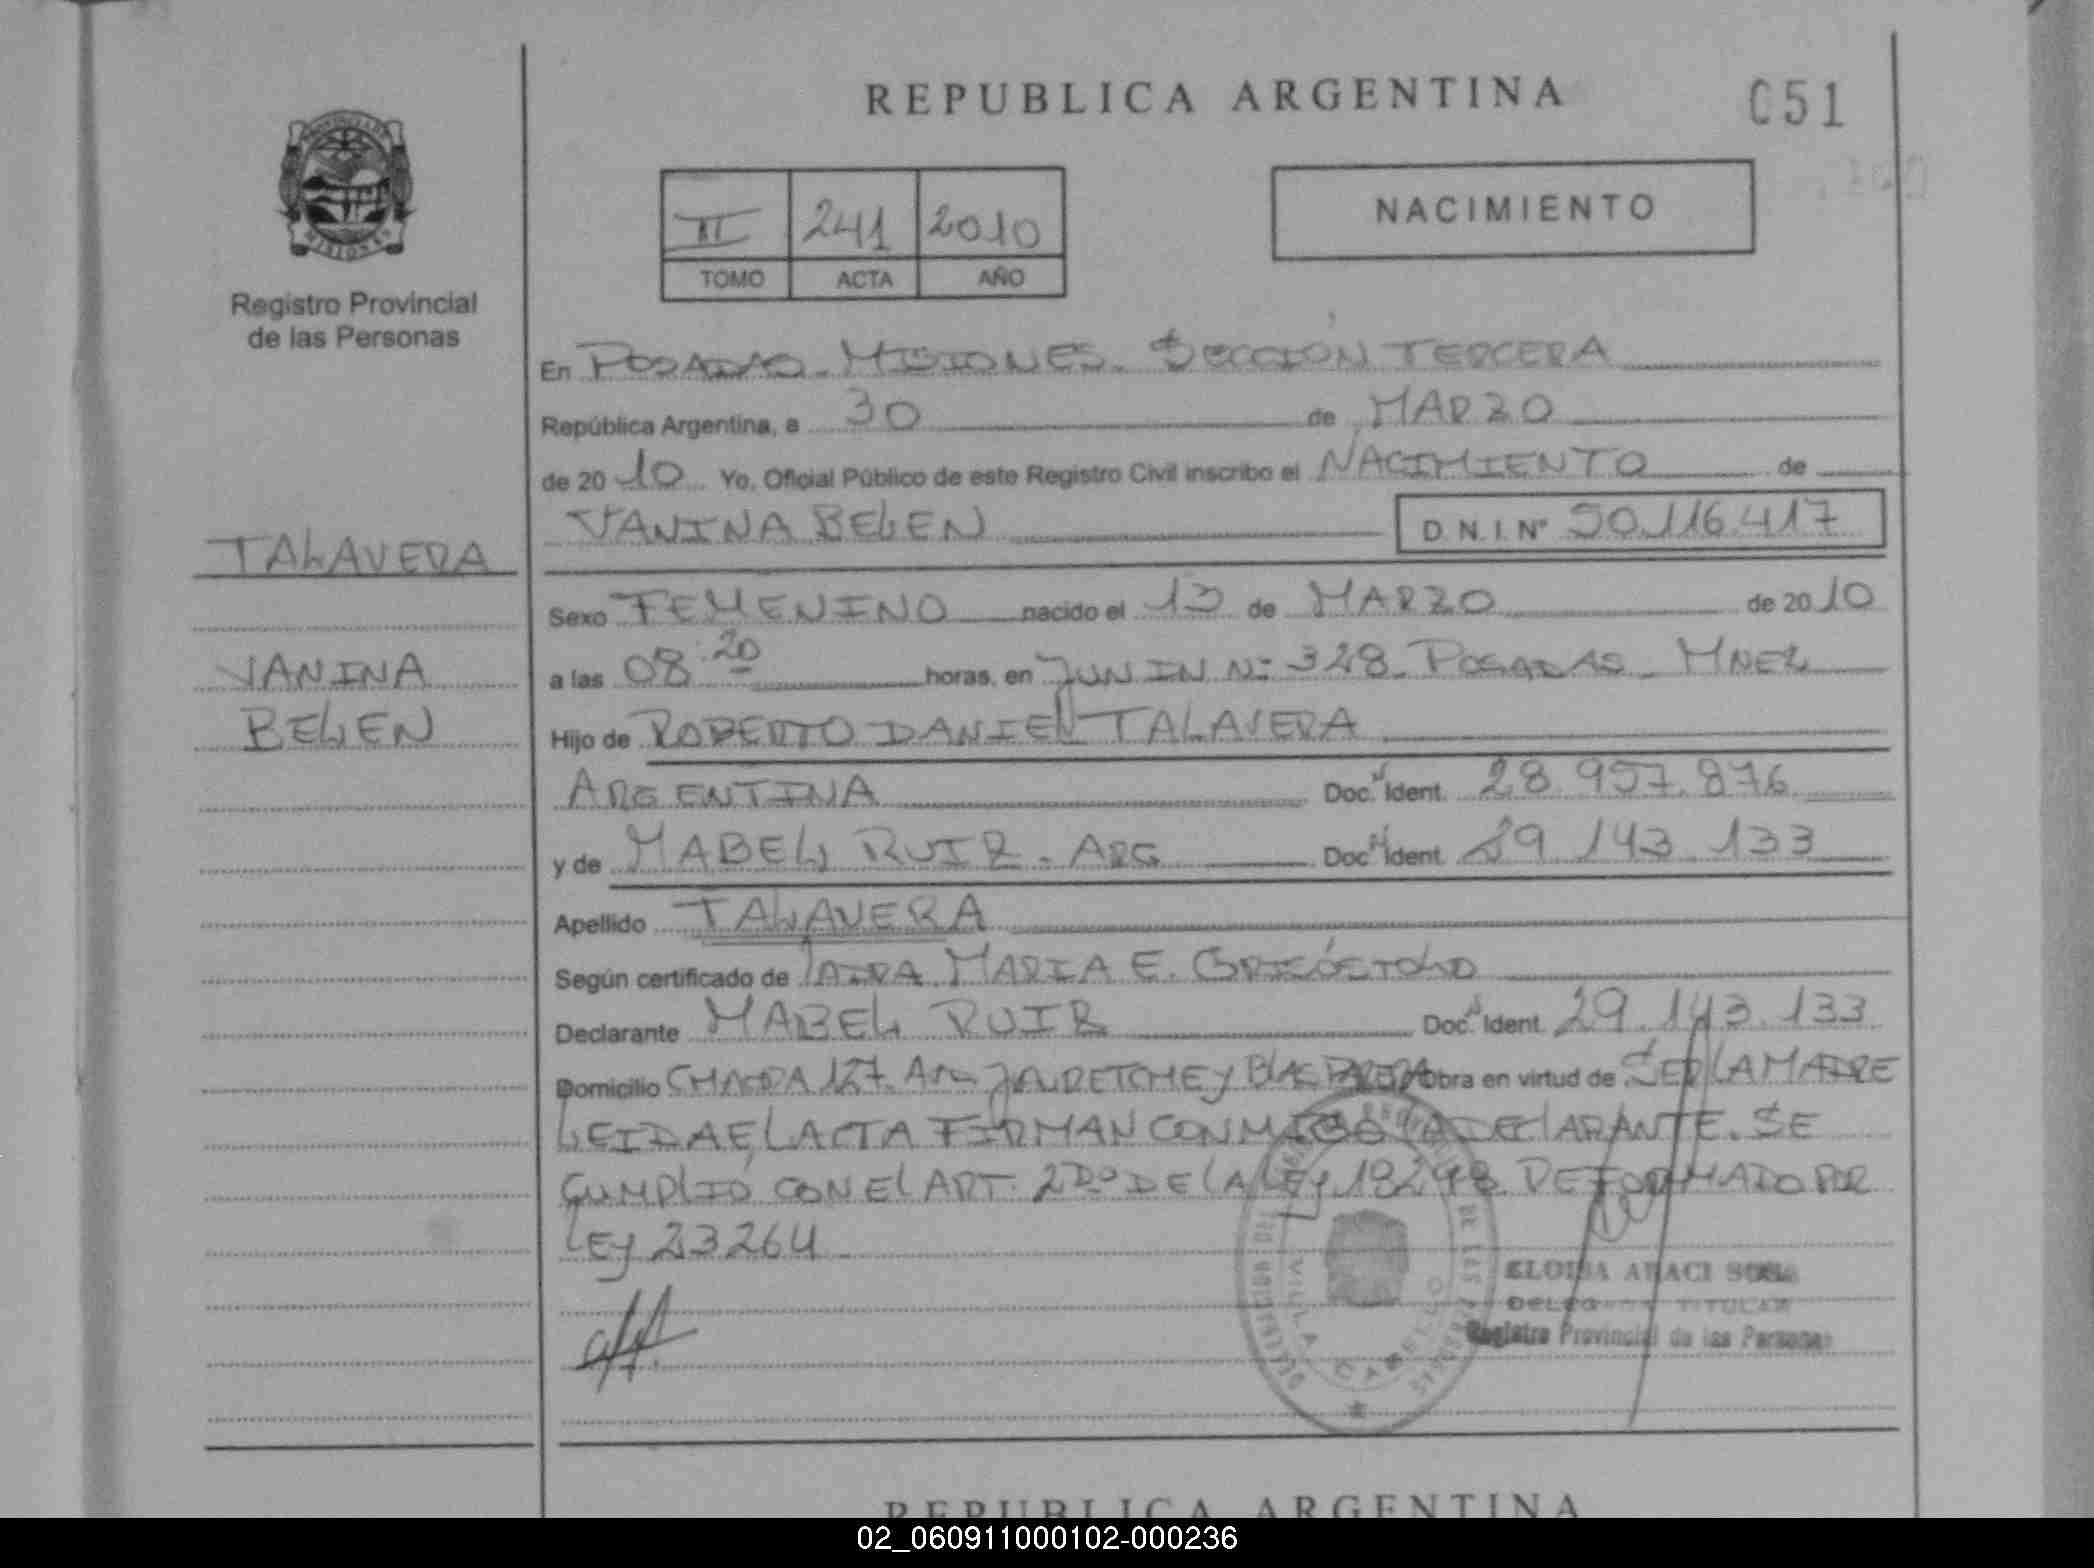 REPUBLICA ARGENTINA
051
PROVINCIA DE
MISIONES
Registro Provincial
de las Personas
II 241 2010
TOMO ACTA AÑO
NACIMIENTO
En POSADAS - MISIONES - SECCIÓN TERCERA
República Argentina, a 30 de MARZO
de 2010 Yo, Oficial Público de este Registro Civil inscribo el NACIMIENTO de
VANINA BELEN D.N.I. Nº 50.116.417
TALAVERA
Sexo FEMENINO nacido el 13 de MARZO de 2010
VANINA
a las 08:20 horas, en JUNIN Nº 328 - POSADAS - MNES
BELEN
Hijo de ROBERTO DANIEL TALAVERA
ARGENTINA Doc. Ident. 28.957.876
y de MABEL RUIZ - ARG Doc. Ident. 29.143.133
Apellido TALAVERA
Según certificado de MARIA E.
Declarante MABEL RUIZ Doc. Ident. 29.143.133
Domicilio CHACRA 127 JAURETCHE y BLAS PARERA Obra en virtud de SER LA MADRE
LEIDA EL ACTA FIRMAN CONMIGO LA DECLARANTE. SE
CUMPLIÓ CON EL ART. 2DO DE LA LEY 18248 REFORMADO POR
LEY 23264
ELOISA ARACI SOSA
DELEGADA TITULAR
Registro Provincial de las Personas
VILLA CABELLO
REPUBLICA ARGENTINA
02_060911000102-000236